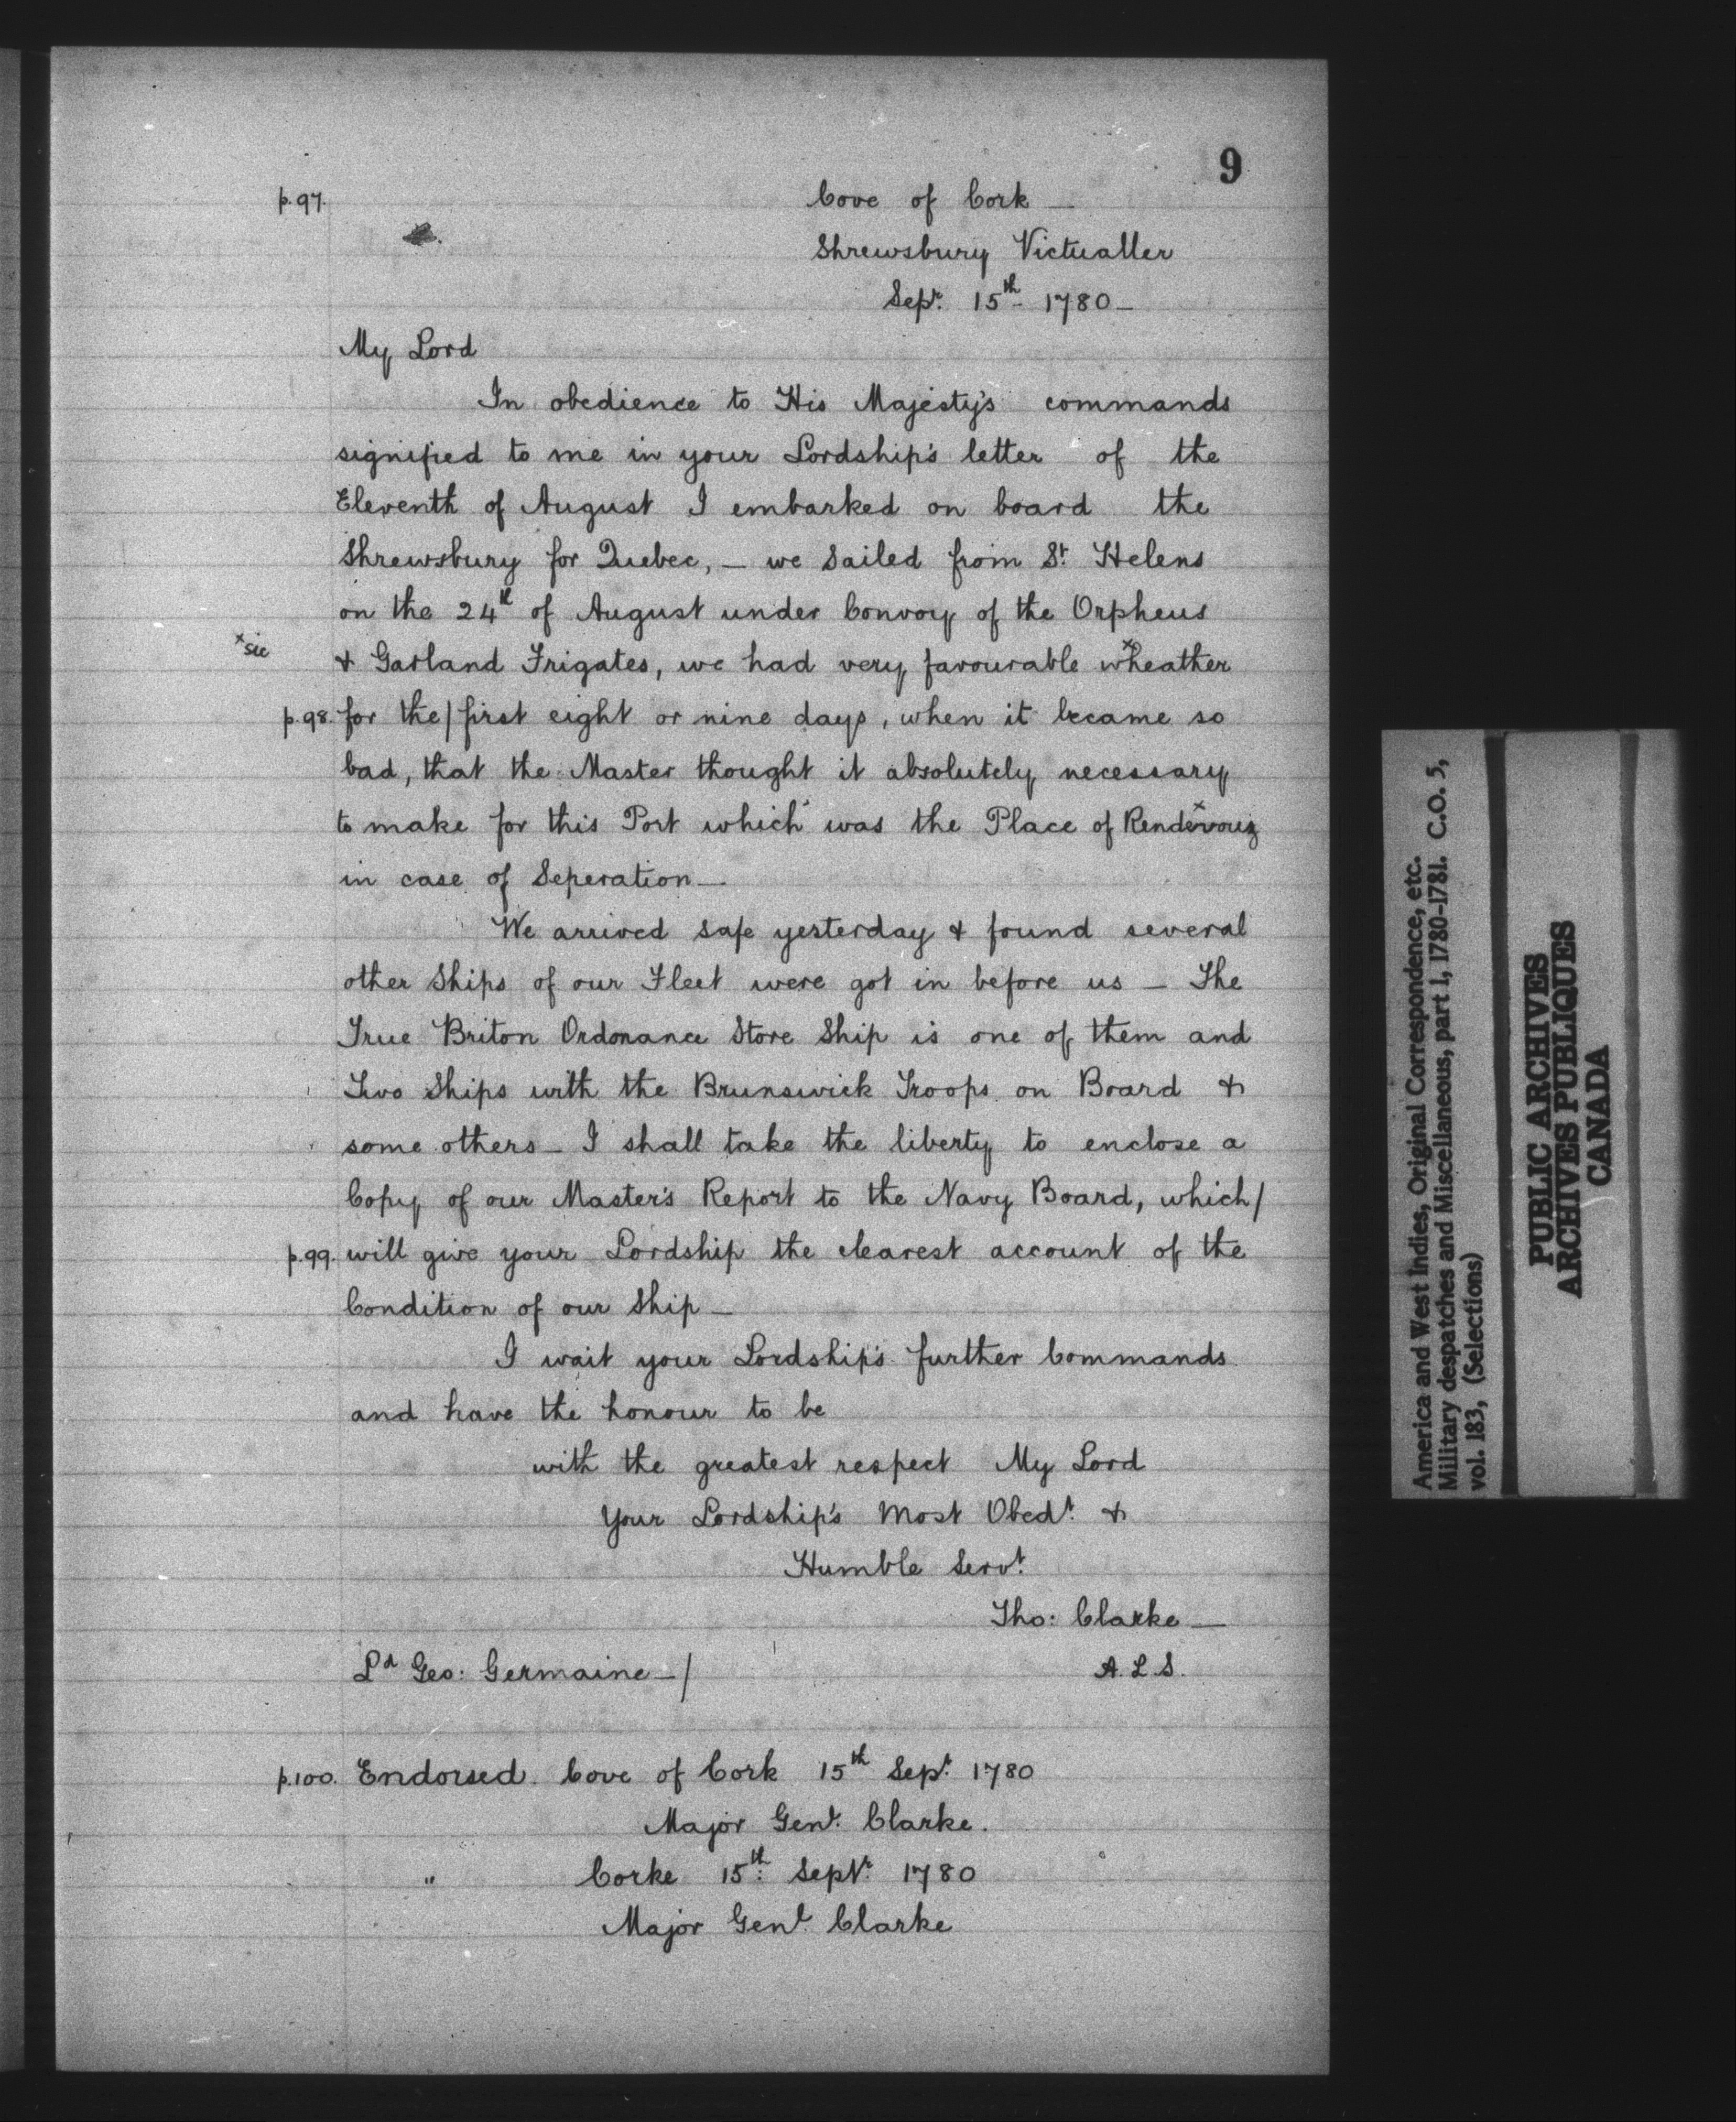 9
p.97. Cove of Cork —
Shrewsbury Victualler
Sepr. 15th 1780 —
My Lord
In obedience to His Majesty's commands
signified to me in your Lordship's letter of the
Eleventh of August I embarked on board the
Shrewsbury for Quebec, — we Sailed from St. Helens
on the 24th of August under Convoy of the Orpheus
xsic & Garland Frigates, we had very favourable wxheather
p.98. for the/first eight or nine days, when it became so
bad, that the Master thought it absolutely necessary
to make for this Port which was the Place of Rendexvouz
in case of Seperation —
We arrived safe yesterday & found several
other Ships of our Fleet were got in before us — The
True Briton Ordonance Store Ship is one of them and
Two Ships with the Brunswick Troops on Board &
some others — I shall take the liberty to enclose a
Copy of our Master's Report to the Navy Board, which/
p.99. will give your Lordship the clearest account of the
Condition of our Ship —
I wait your Lordship's further Commands
and have the honour to be
with the greatest respect My Lord
Your Lordship's Most Obedt. &
Humble Servt.
Tho: Clarke —
Ld Geo: Germaine —/ A.L.S.
p.100. Endorsed. Cove of Cork 15th Sepr. 1780
Major Genl. Clarke.
" Corke 15th: Septr. 1780
Major Genl. Clarke
America and West Indies, Original Correspondence, etc.
Military despatches and Miscellaneous, part 1, 1780-1781. C.O. 5,
vol. 183, (Selections)
PUBLIC ARCHIVES
ARCHIVES PUBLIQUES
CANADA